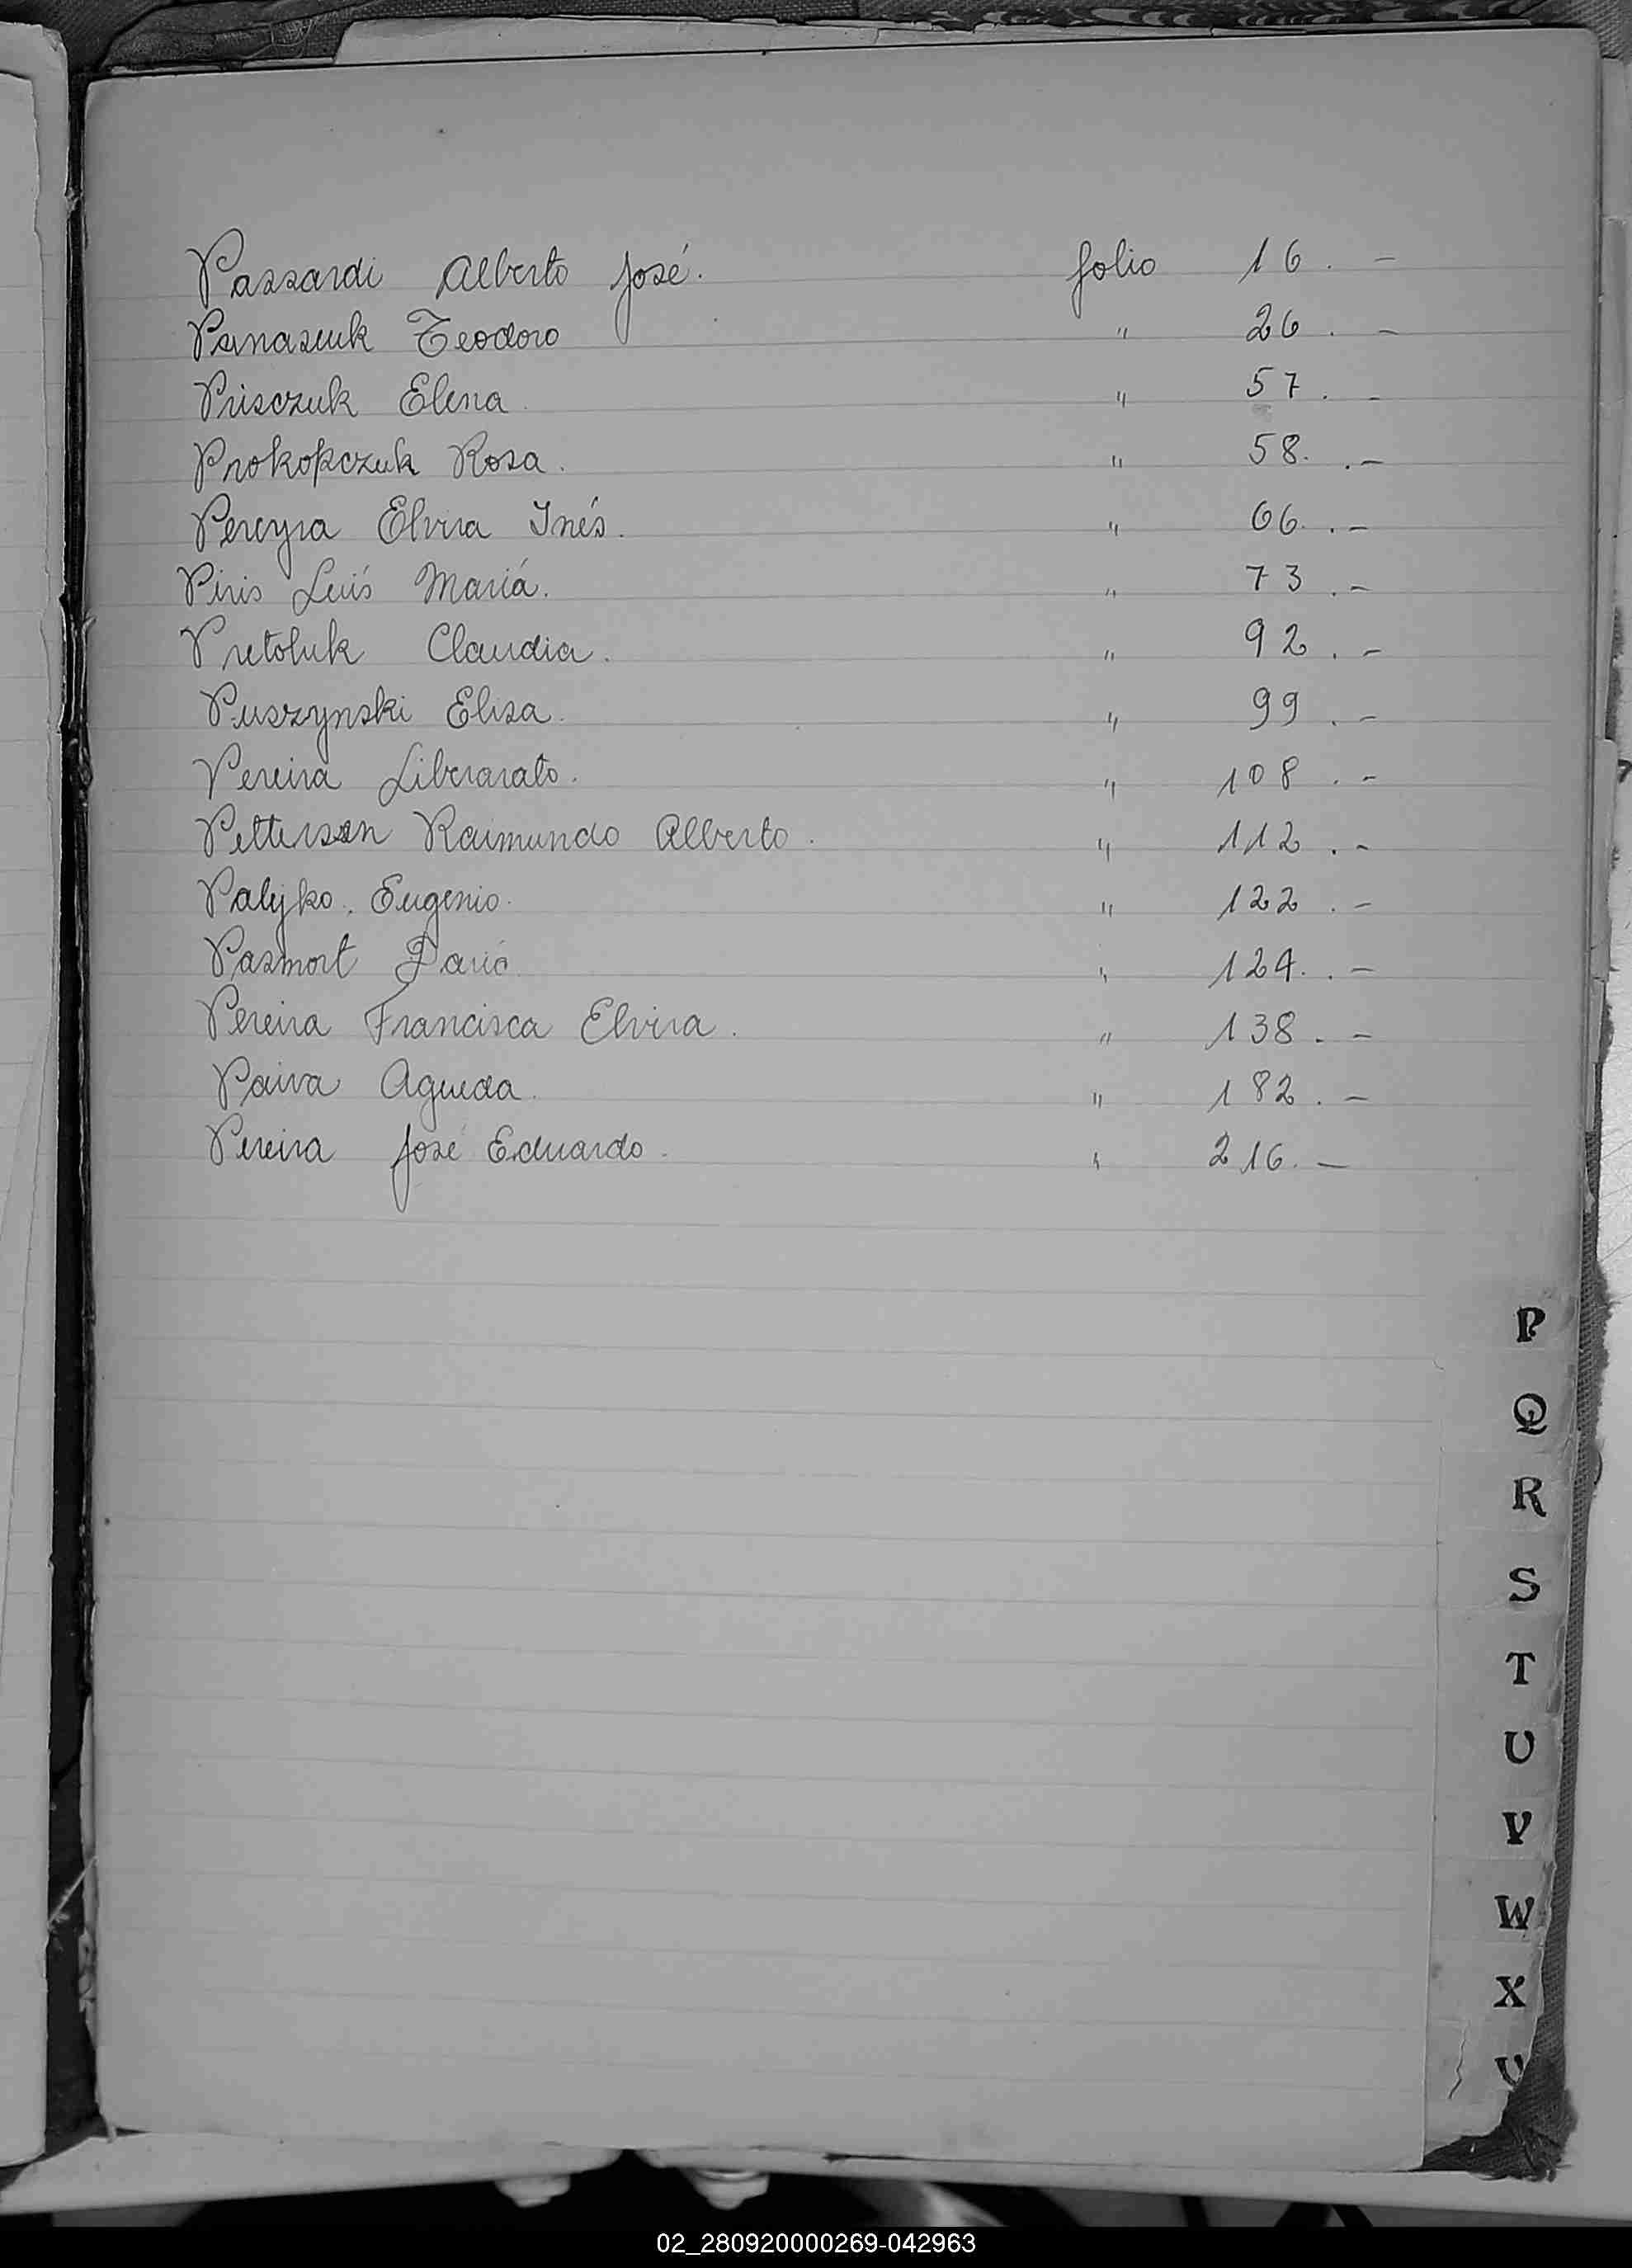 Passardi Alberto José. folio 16. -
Panasiuk Teodoro " 26. -
Prisczuk Elena " 57. -
Prokopczuk Rosa. " 58. . -
Pereyra Elvira Inés. " 66. . -
Piris Luís Mariá. " 73 . -
Pretoluk Claudia. " 92 . -
Puszynski Elisa. " 99 . -
Pereira Liberarato. " 108 . -
Petterson Raimundo Alberto. " 112 . -
Palyko. Eugenio. " 122 . -
Pasmort Darió. " 124. . -
Pereira Francisca Elvira. " 138. -
Paiva Agueda. " 182. -
Pereira José Eduardo. " 216. -
P
Q
R
S
T
U
V
W
X
02_280920000269-042963